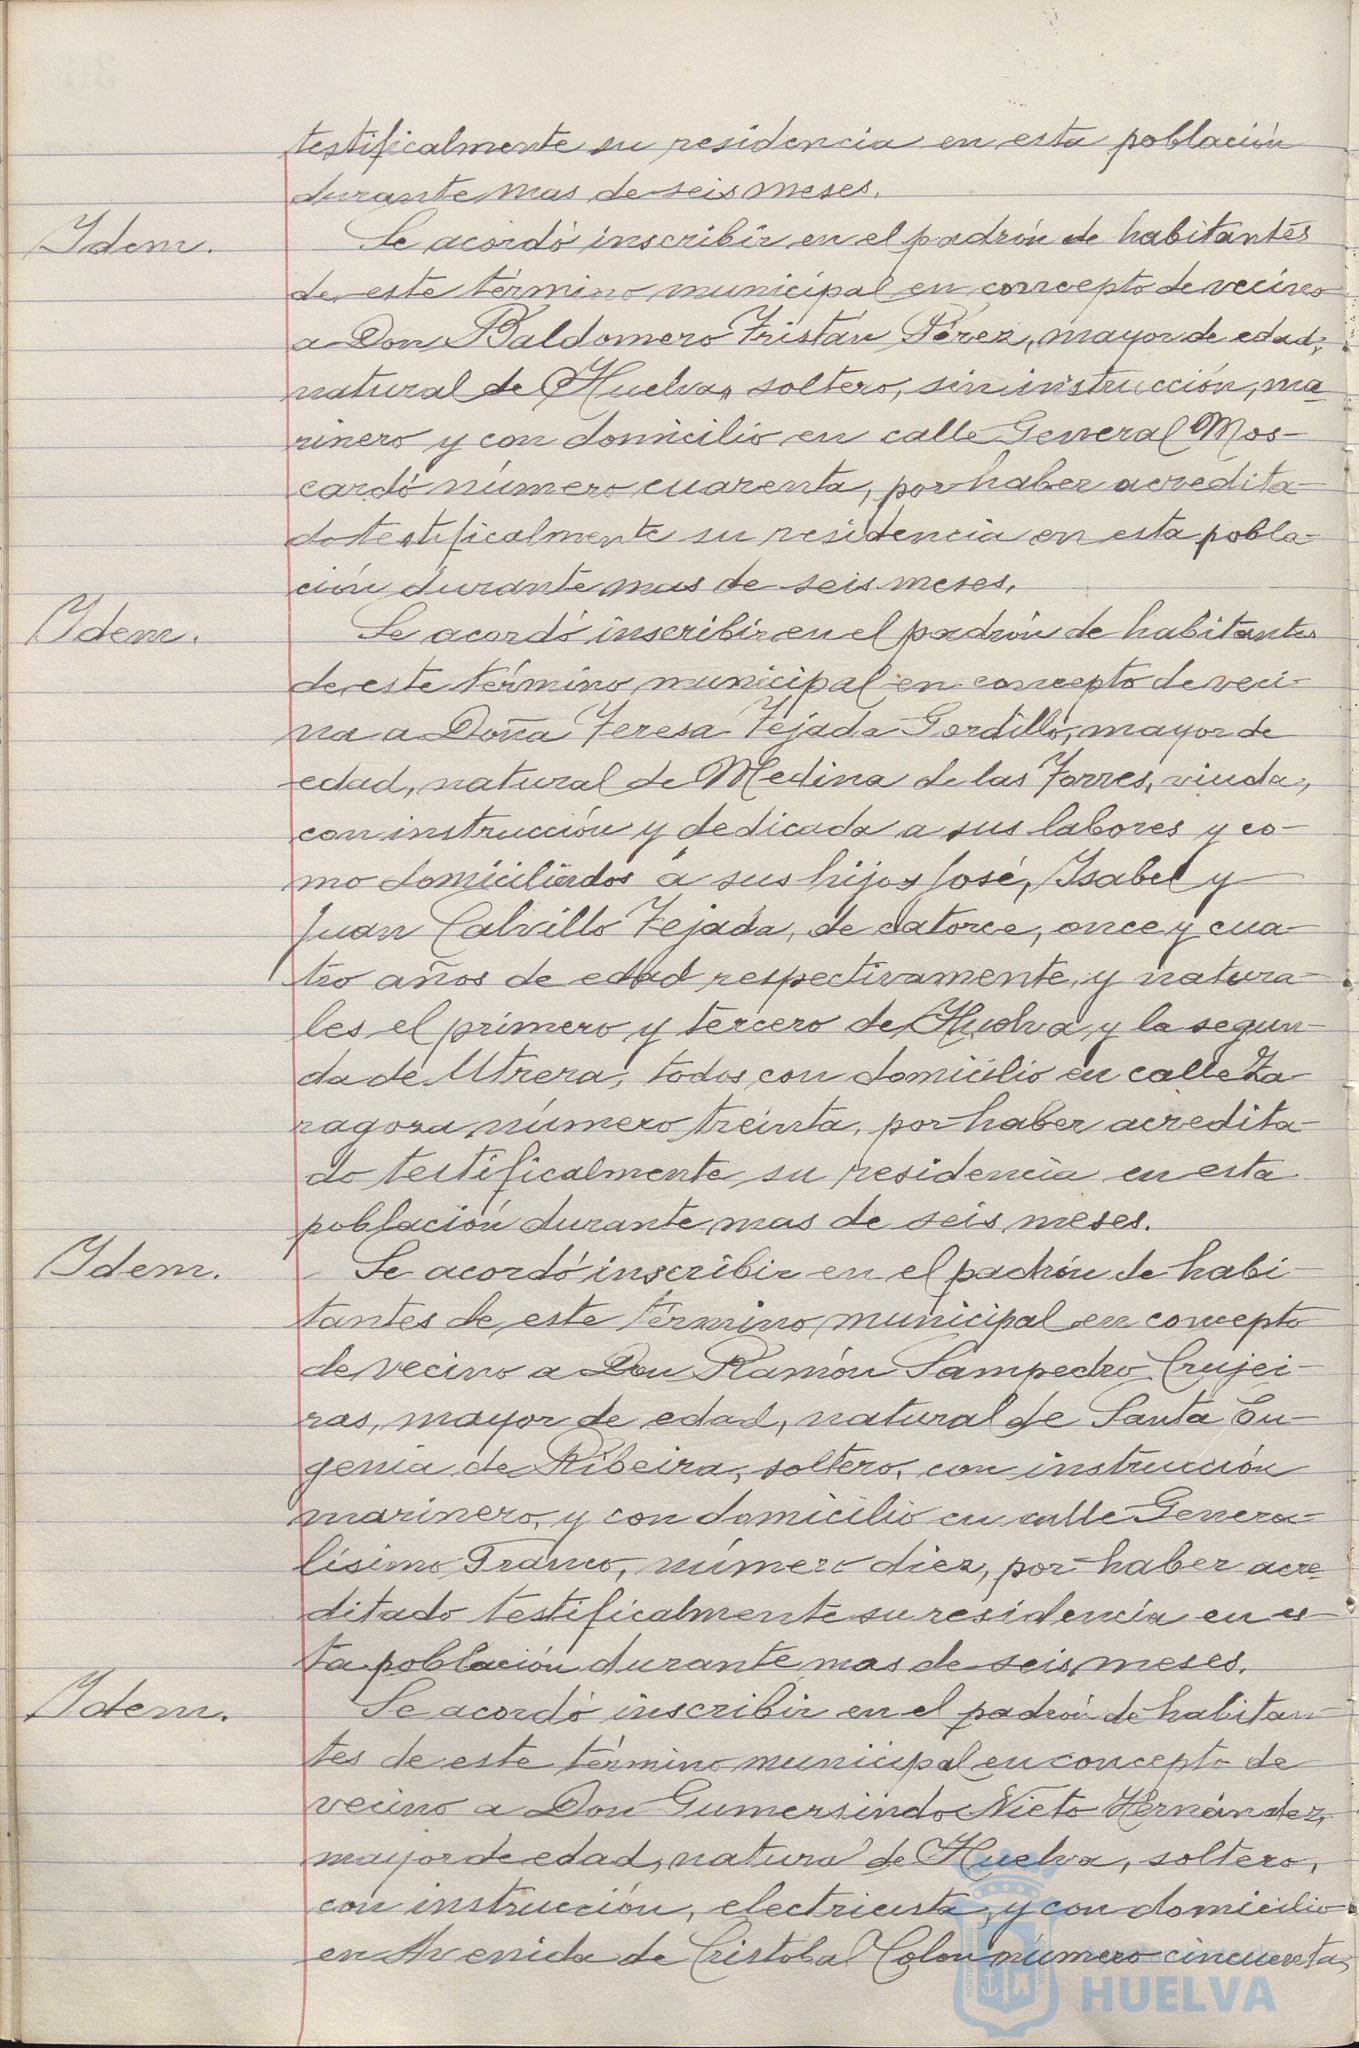 testificalmente su residencia en esta población
durante mas de seis meses.
Idem.
Se acordó inscribir en el padrón de habitantes
de este término municipal en concepto de vecino
a Don Baldomero Tristán Pérez, mayor de edad,
natural de Huelva, soltero, sin instrucción, ma-
rinero y con domicilio en calle General Mos-
cardó número cuarenta, por haber acredita-
do testificalmente su residencia en esta pobla-
ción durante mas de seis meses.
Idem.
Se acordó inscribir en el padrón de habitantes
de este término municipal en concepto de veci-
na a Doña Teresa Tejada Gordillo, mayor de
edad, natural de Medina de las Torres, viuda,
con instrucción y dedicada a sus labores y co-
mo domiciliados a sus hijos José, Isabel y
Juan Calvillo Tejada, de catorce, once y cua-
tro años de edad respectivamente, y natura-
les el primero y tercero de Huelva y la segun-
da de Utrera, todos con domicilio en calle Za-
ragoza número treinta, por haber acredita-
do testificalmente su residencia en esta
población durante mas de seis meses.
Idem.
Se acordó inscribir en el padrón de habi-
tantes de este término municipal en concepto
de vecino a Don Ramón Sampedro Crujei-
ras, mayor de edad, natural de Santa Eu-
genia de Ribeira, soltero, con instrucción
marinero, y con domicilio en calle Genera-
lísimo Franco, número diez, por haber acre-
ditado testificalmente su residencia en es-
ta población durante mas de seis meses.
Idem.
Se acordó inscribir en el padrón de habitan-
tes de este término municipal en concepto de
vecino a Don Gumersindo Nieto Hernández,
mayor de edad, natural de Huelva, soltero,
con instrucción, electricista, y con domicilio
en Avenida de Cristobal Colon número cincuenta,
HUELVA